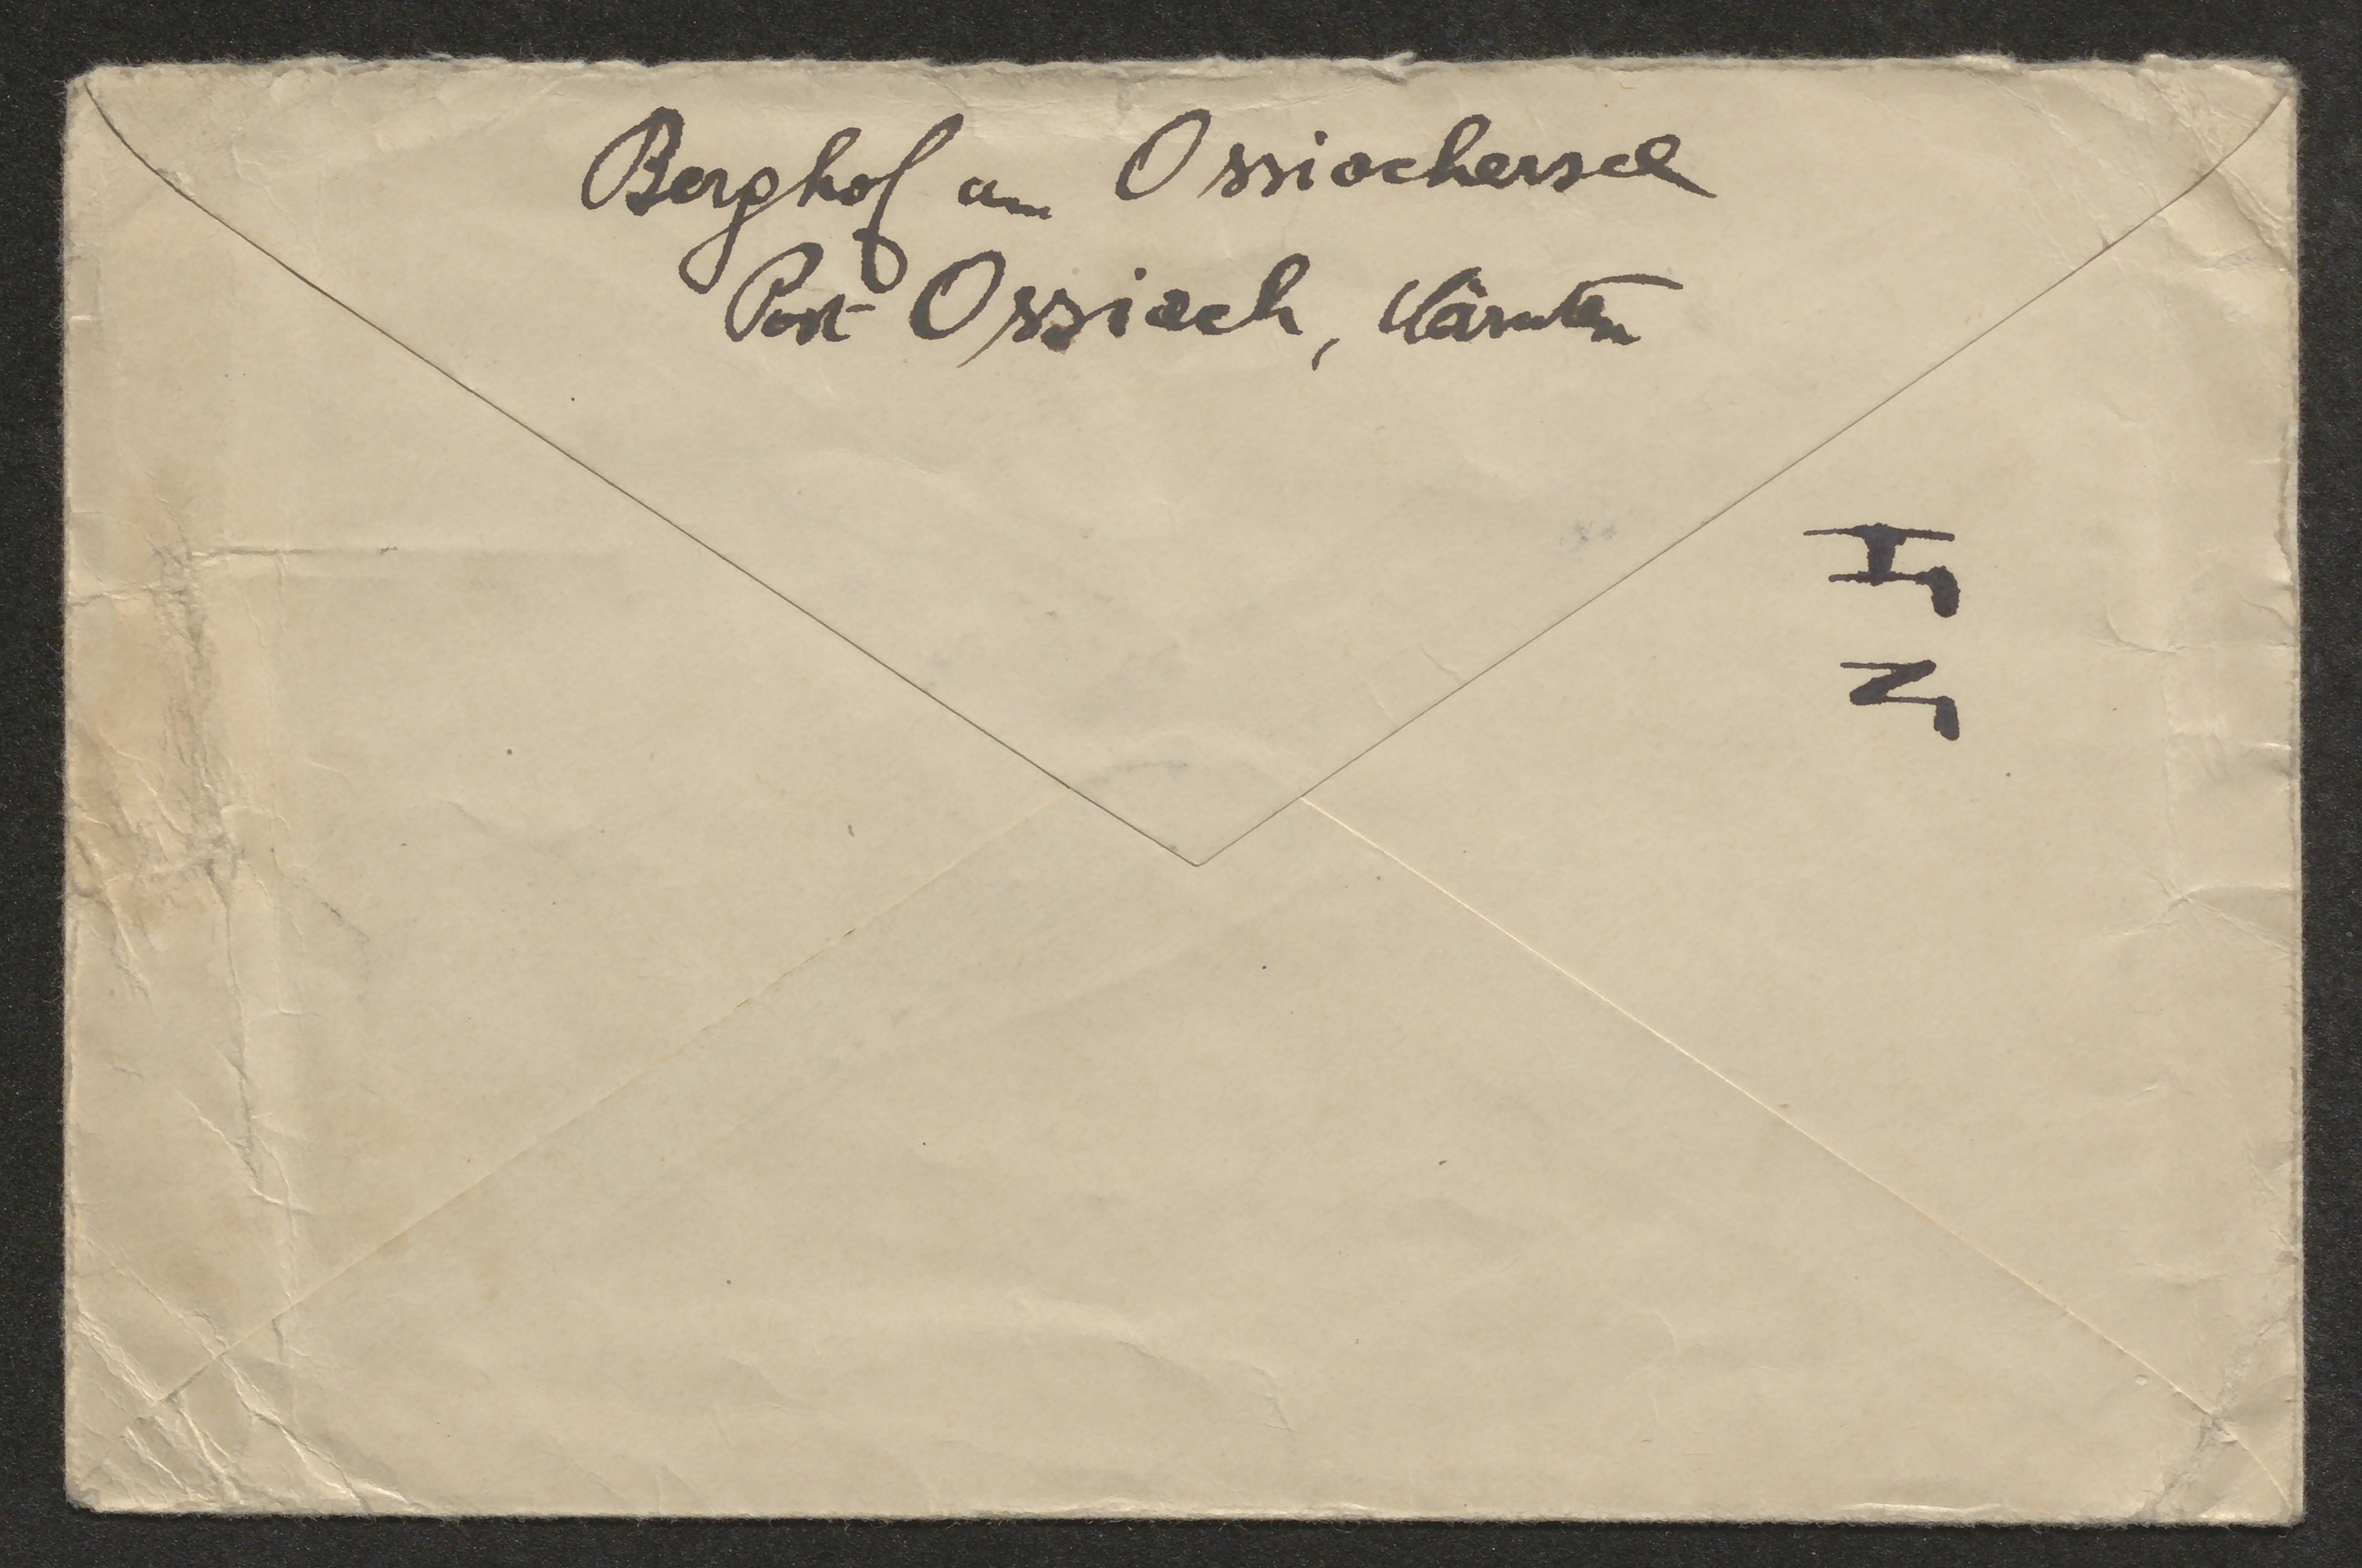 Berghof am Ossiachersee
Post Ossiach, Kärnten